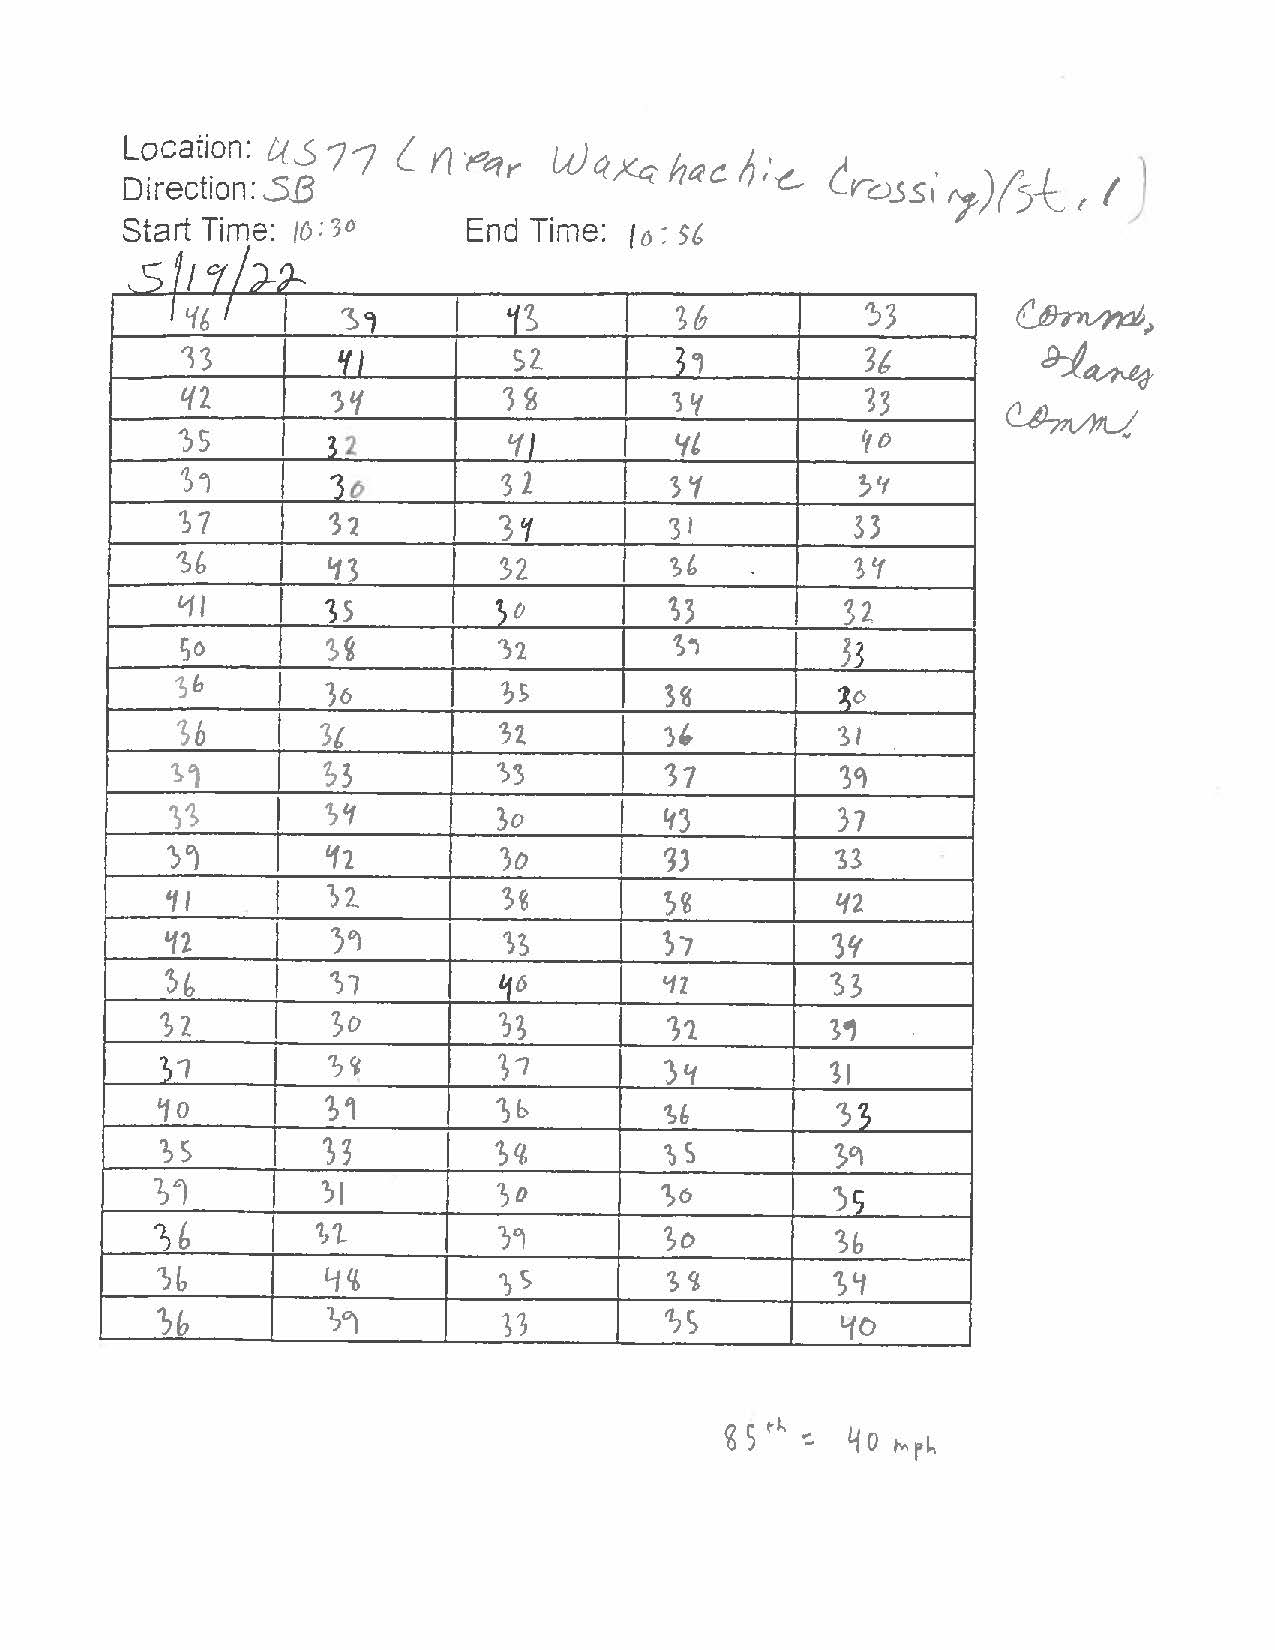 Location: US 77 (near Waxahachie Crossing)(st. 1)
Direction: SB
Start Time: 10:30 End Time: 10:56
5/19/22
46 39 43 36 33
33 41 52 39 36
42 34 38 34 33
35 32 41 46 40
39 30 32 34 34
37 32 34 31 33
36 43 32 36 34
41 35 30 33 32
50 38 32 39 33
36 30 35 38 30
36 36 32 36 31
39 33 33 37 39
33 34 30 43 37
39 42 30 33 33
41 32 38 38 42
42 39 33 37 34
36 37 40 42 33
32 30 33 32 39
37 38 37 34 31
40 39 36 36 33
35 33 38 35 39
39 31 30 30 35
36 32 39 30 36
36 48 35 38 34
36 39 33 35 40
lanes
comm.
85th = 40 mph